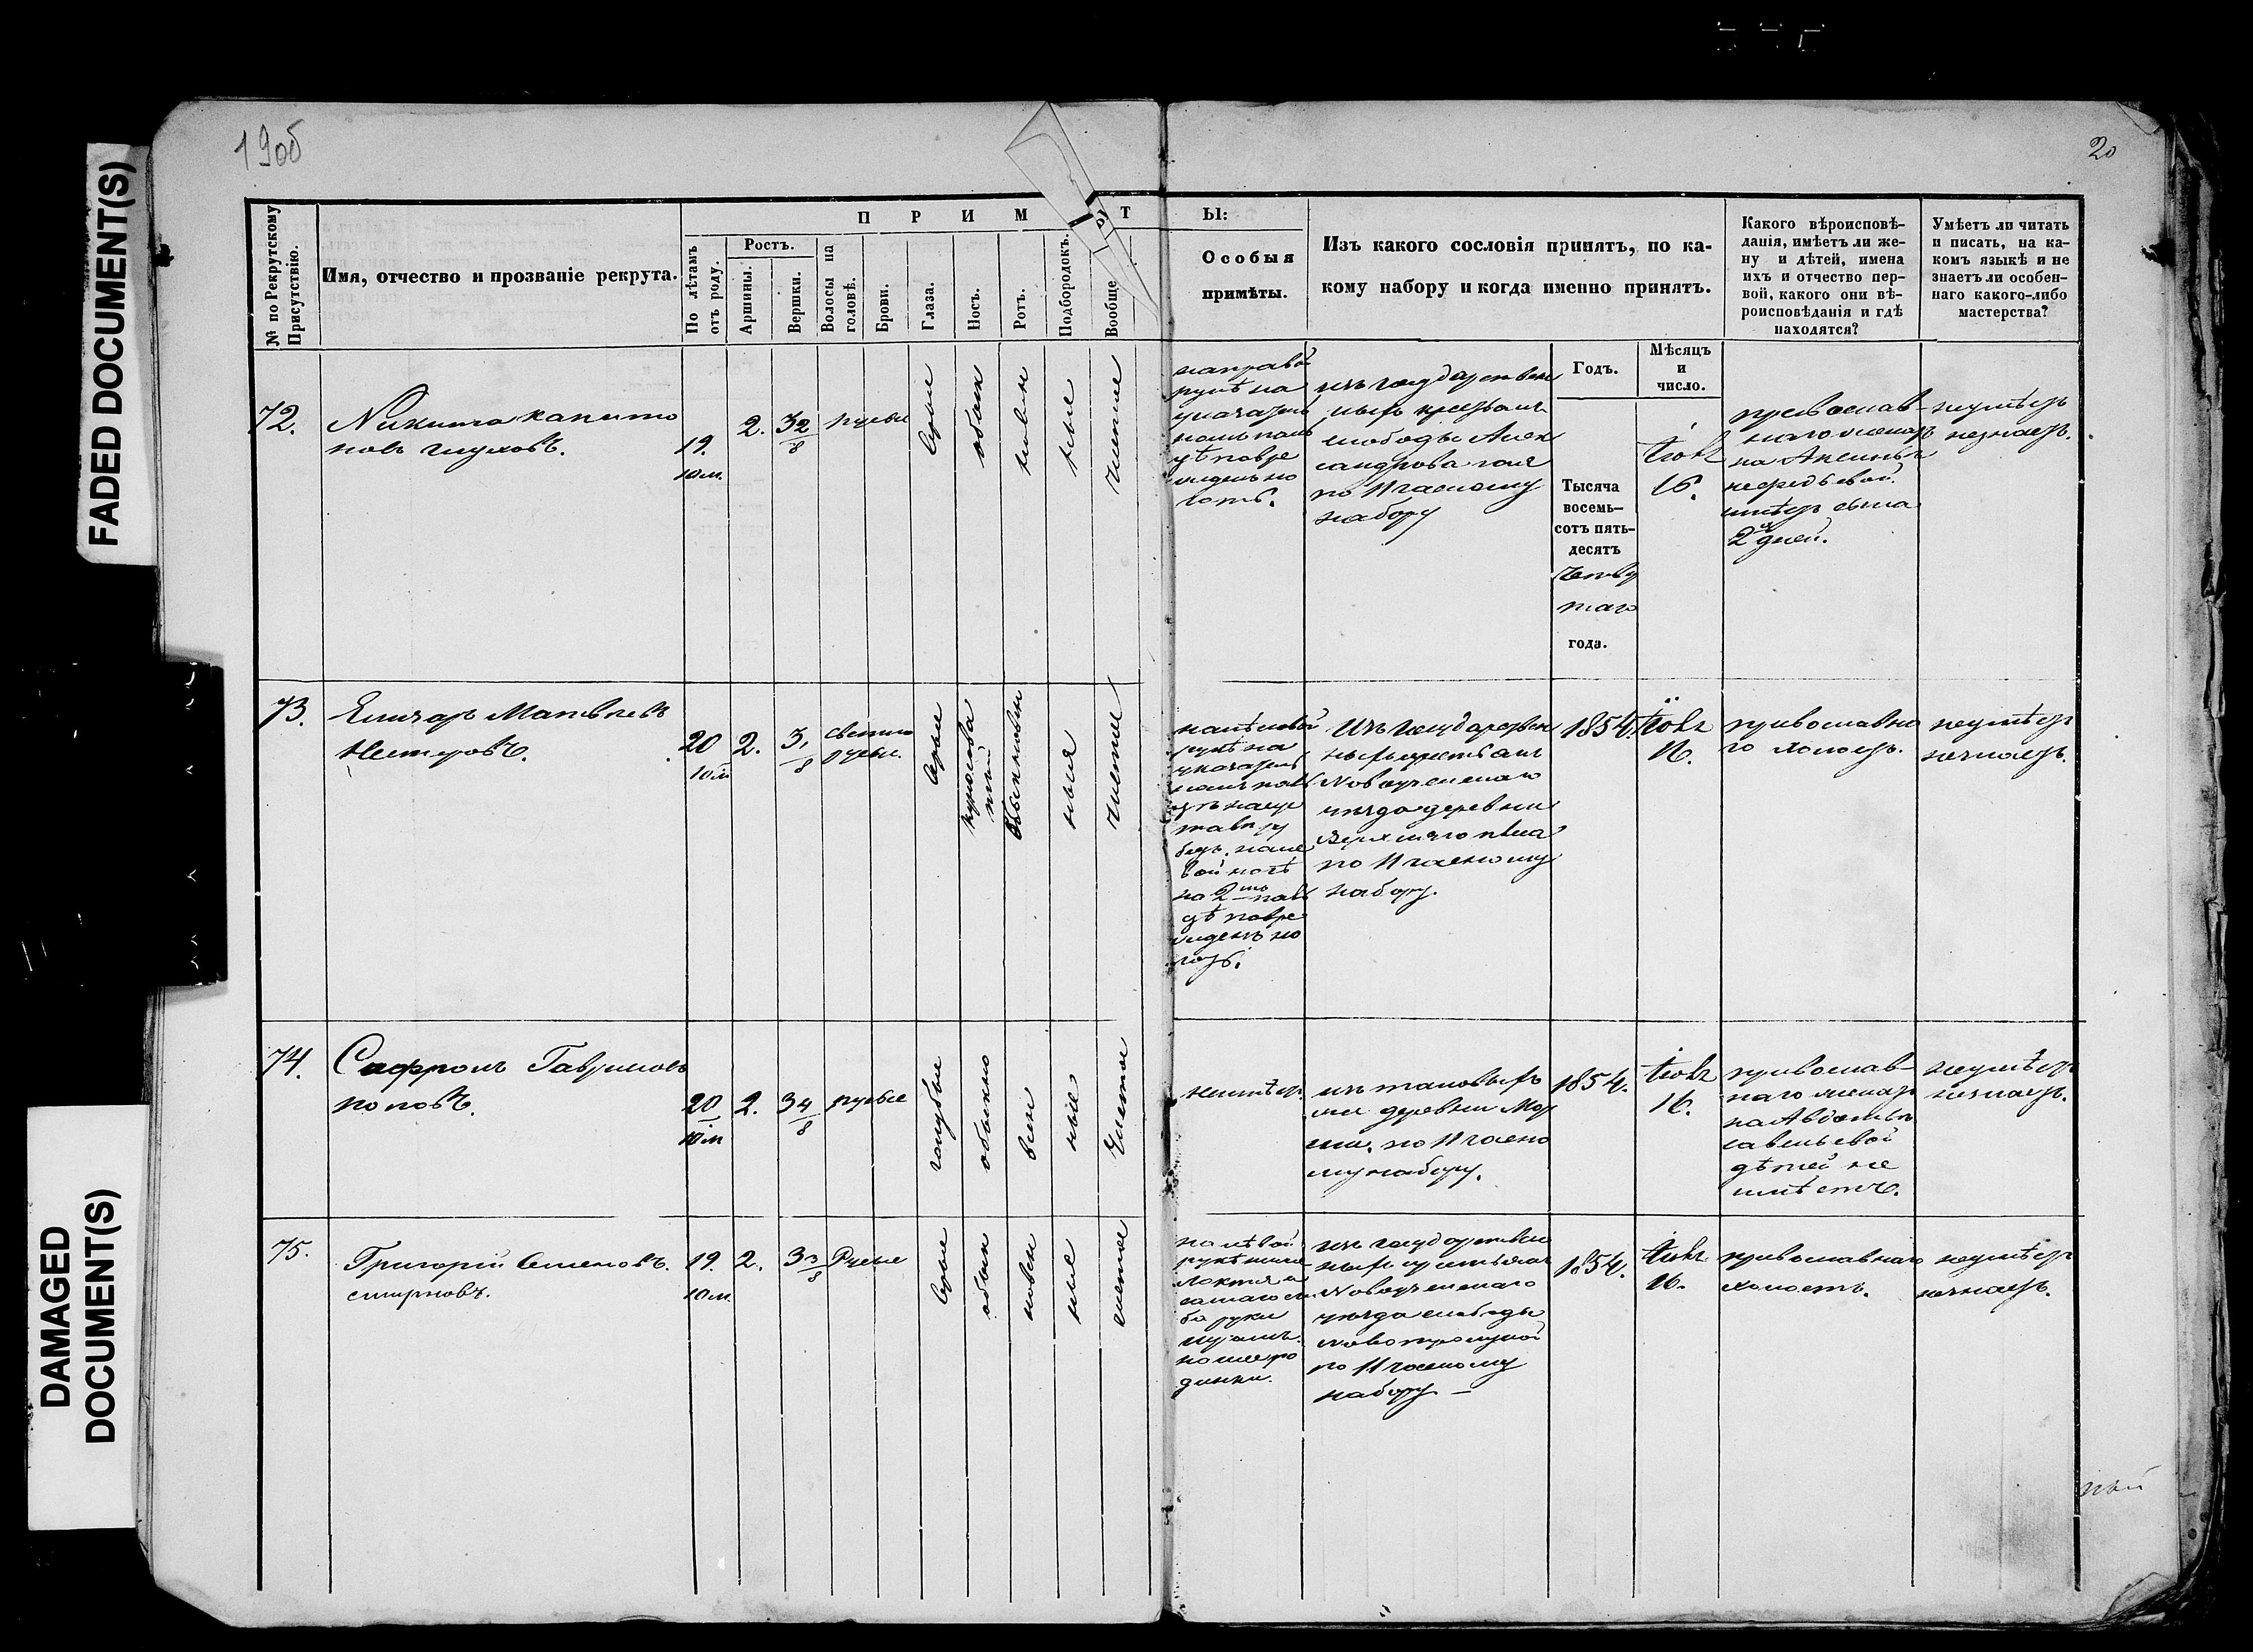 FADED DOCUMENT(S)
DAMAGED
DOCUMENT(S)
19об
20
П Р И М Т
Ы:
№ по Рекрутскому
Присутствію.
Имя, отчество и прозваніе рекрута.
По лѣтамъ
отъ роду.
Ростъ.
Аршины.
Вершки.
Волосы на
головѣ.
Брови.
Глаза.
Носъ.
Ротъ.
Подбородокъ.
Вообще
Особыя
примѣты.
Изъ какого сословія принятъ, по ка-
кому набору и когда именно принятъ.
Какого вѣроисповѣ-
данія, имѣетъ ли же-
ну и дѣтей, имена
ихъ и отчество пер-
вой, какого они вѣ-
роисповѣданія и гдѣ
находятся?
Умѣетъ ли читать
и писать, на ка-
комъ языкѣ и не
знаетъ ли особен-
наго какого-либо
мастерства?
Годъ.
Мѣсяцъ
и
число.
72.
Никита капито
новъ глуховъ.
19.
10 м.
2.
3 2/8
русые
Серые
обык
новен
ные
чистое
на правой
рукѣ на
указатель
номъ паль
цѣ повре
жденъ но
готь.
изъ государствен
ныхъ крестьянъ
слободы Алек
сандрова гая
по 11 частному
набору
Тысяча
восемь-
сотъ пять-
десятъ
Четвер
таго
года.
16.
православ-
наго женатъ
на Аксиньѣ
имѣетъ сына
2 дней.
неумѣетъ
незнаетъ.
73.
Елизаръ Матвѣевъ
Нестеровъ.
20
10 м
2.
3 1/8
светло
русые.
Серые
курнова
тый
Обыкновен
ныя
чистое
на лѣвой
рукѣ на
указатель
бецъ. на ле
вой ногѣ
на 2мъ паль
цѣ повре
жденъ но
готь.
Изъ государствен
ныхъ крестьянъ
Новоузенскаго
уѣзда деревни
по 11 частному
набору.
1854.
16.
православна
го холостъ.
неумѣетъ
незнаетъ.
74.
Сафронъ Гавриловъ
поповъ.
20
10 м
2.
3 4/8
русые
голубые
обыкно
вен
ные
Чистое
неимѣетъ.
изъ таковыхъ
же деревни Мор
по 11 частно
му набору.
1854.
16.
православ-
наго женатъ
на Авдотьѣ
савельевой
дѣтей не
имѣетъ.
неумѣетъ
незнаетъ.
75.
Григорій Семеновъ.
смирновъ.
19.
10 м.
2.
3 3/8
Русые
Серые
обык
новен
ные
чистое
на лѣвой
рукѣ ниже
локтя
руки
на шее ро
динки.
изъ государствен
ныхъ крестьянъ
Новоузенскаго
уѣзда слободы
Новотроицкой
по 11 частному
набору –
1854.
16.
православнаго
холостъ.
неумѣетъ
незнаетъ.